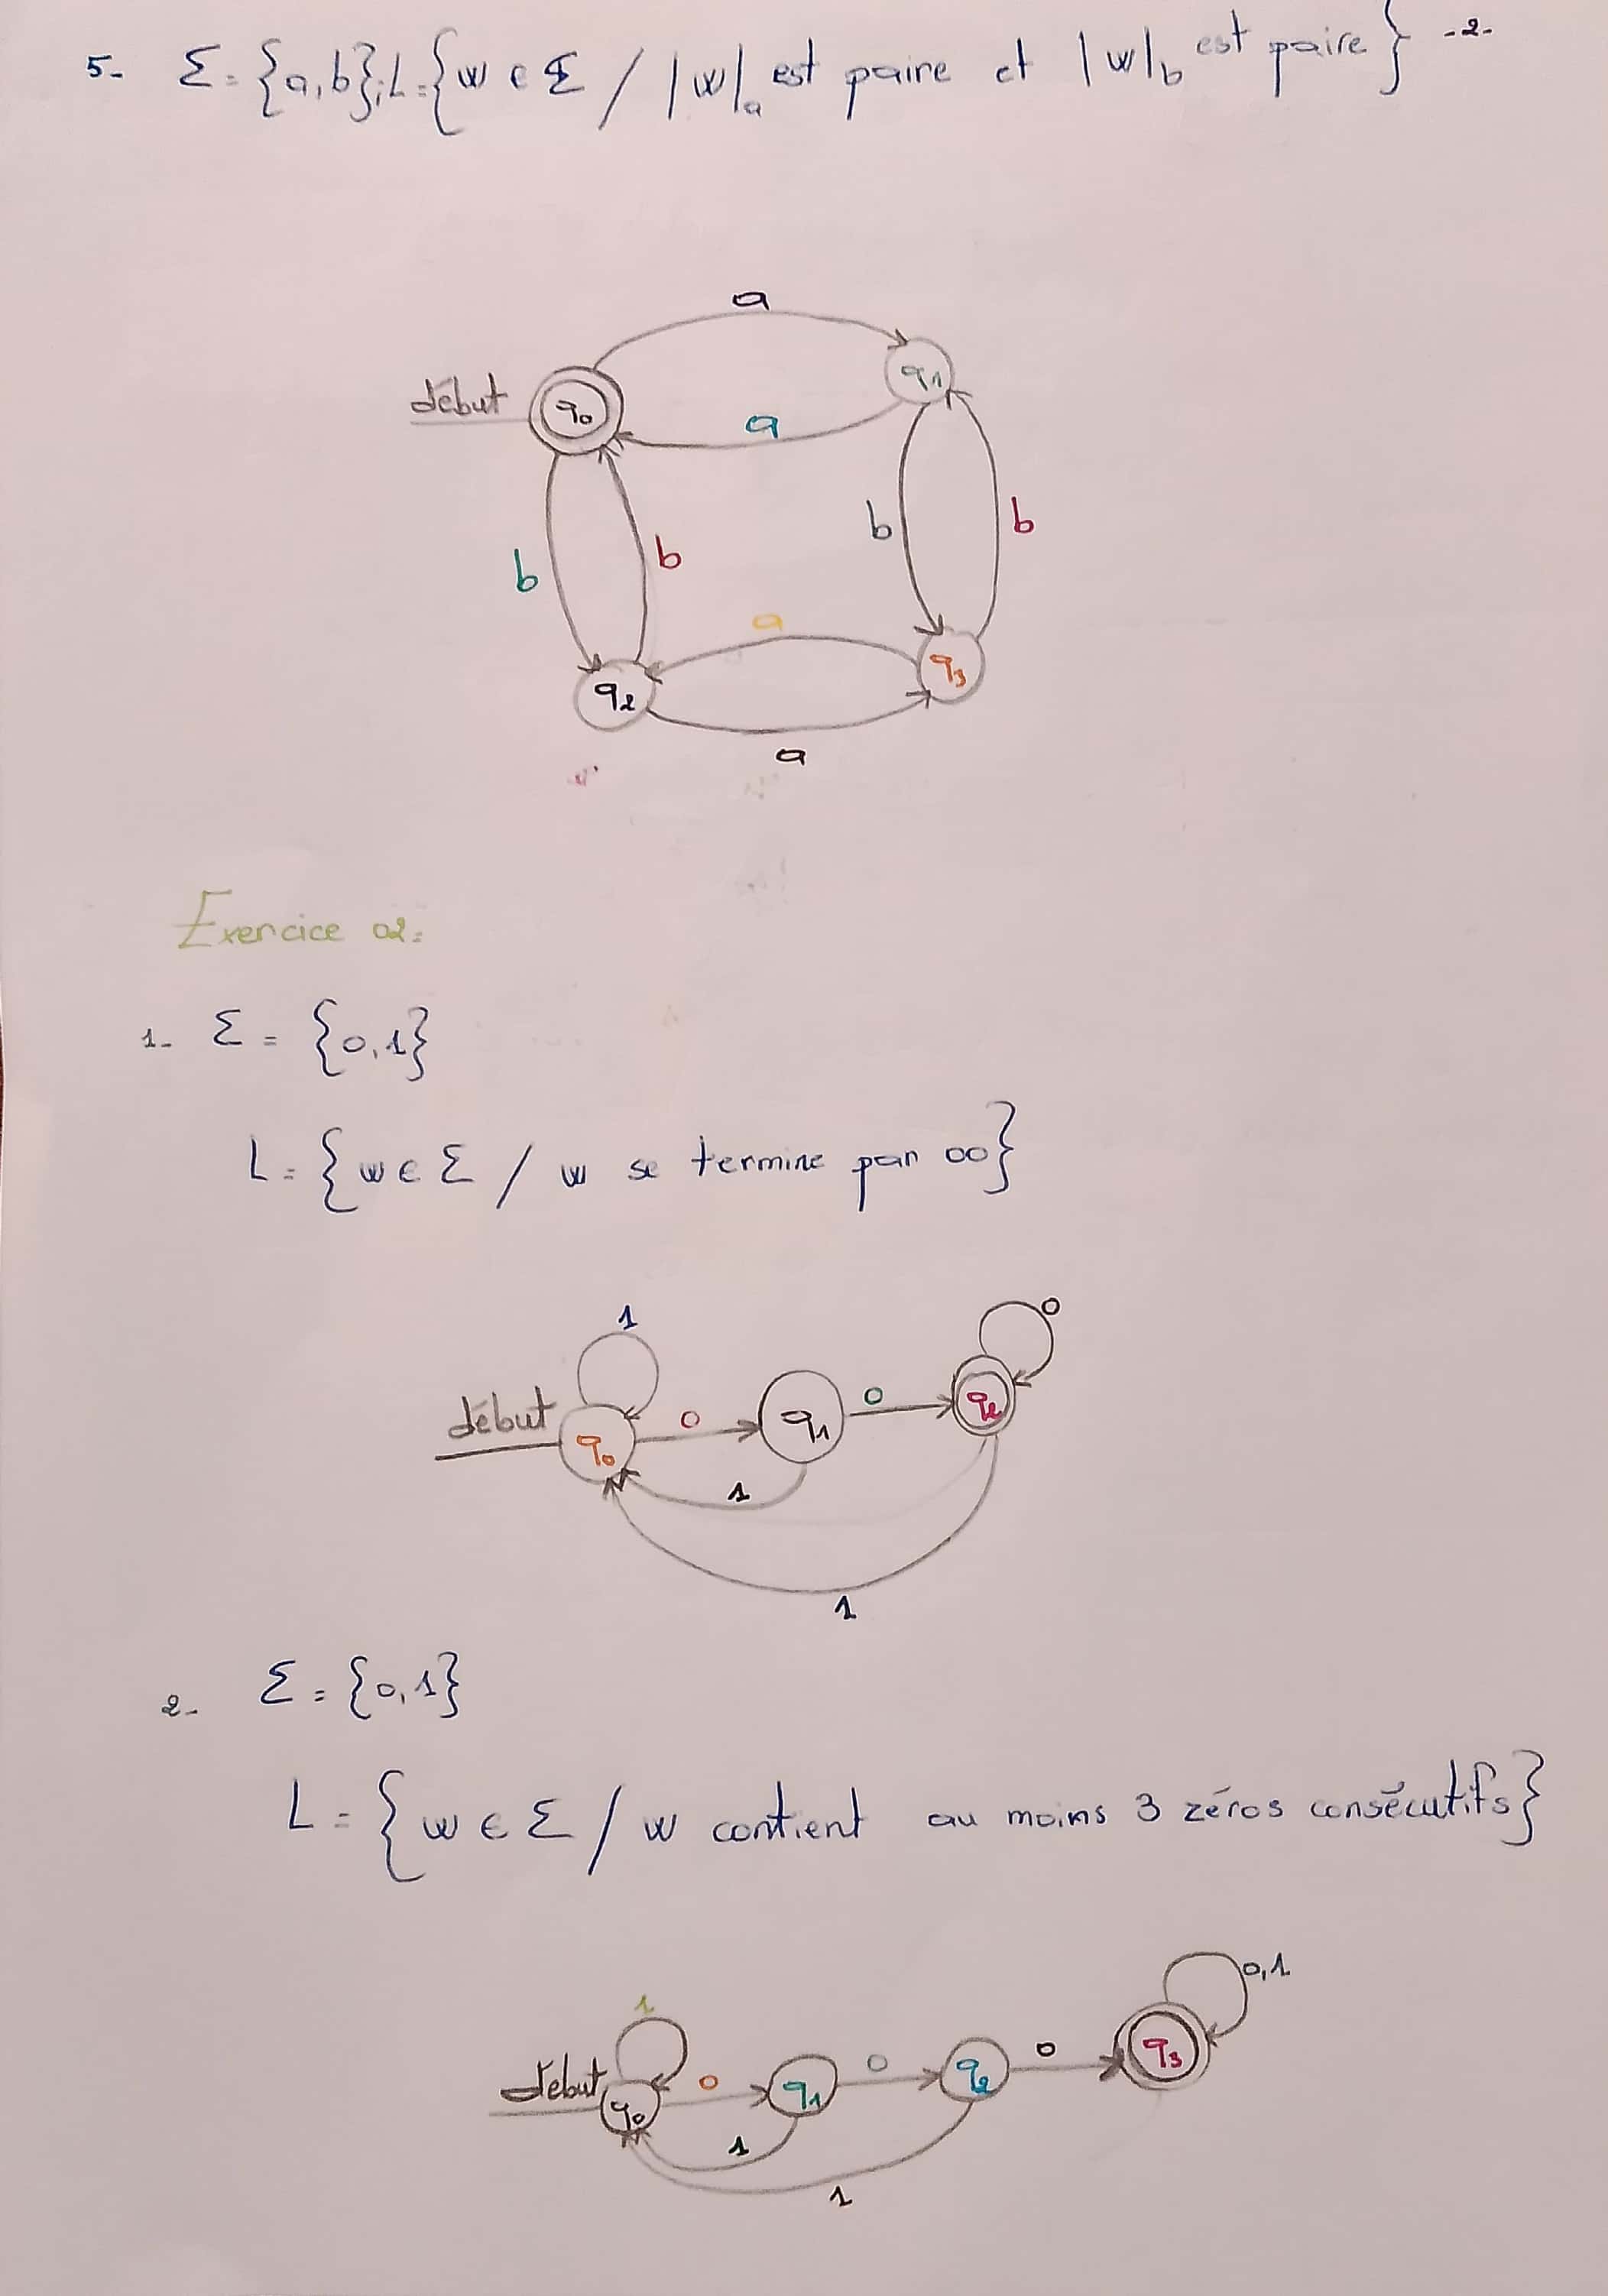 5- Σ = {a,b}; L = {w ∈ Σ / |w|a est paire et |w|b est paire} -2-
a
début q0 q1
a
b b b b
a
q2 q3
a
Exercice 02:
1- Σ = {0,1}
L = {w ∈ Σ / w se termine par 00}
1 0
début q0 0 q1 0 q2
1
1
2- Σ = {0,1}
L = {w ∈ Σ / w contient au moins 3 zéros consécutifs}
1 0,1
début q0 0 q1 0 q2 0 q3
1
1